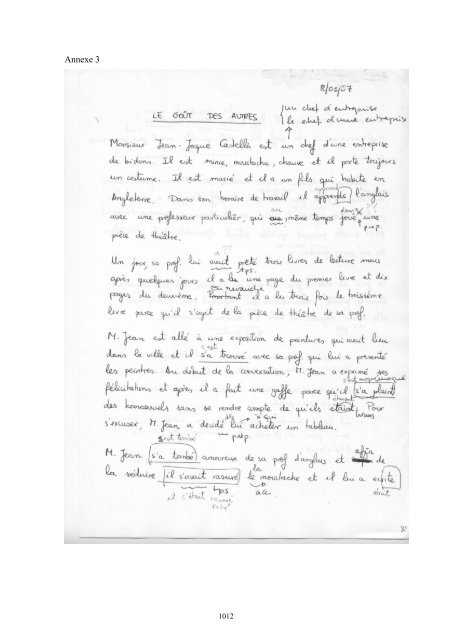 Annexe 3
8/01/07
LE GOÛT DES AUTRES
un chef d'entreprise
le chef d'une entreprise
Monsieur Jean-Jaque Castella est un chef d'une entreprise
de bidons. Il est mince, moustachu, chauve et il porte toujours
un costume. Il est marié et il a un fils qui habite en
Angleterre. Dans son horaire de travail il apprends l'anglais
avec une professeur particulier, qui au même temps joue une
prep.
pièce de théâtre.
Un jour, sa prof lui avait prêté trois livres de lecture mais
tps.
après quelques jours il a lu une page du premier livre et dix
en revanche
pages du deuxième. Pourtant il a lu trois fois le troisième
livre parce qu'il s'agit de la pièce de théâtre de sa prof.
M. Jean est allé à une exposition de peintures qui avait lieu
s'est
dans la ville et il s'a trouvé avec sa prof qui lui a presenté
les peintres. Au début de la conversation, M. Jean a exprimé ses
félicitations et après il a fait une gaffe parce qu'il s'a plaint
des homosexuels sans se rendre compte de qu'ils etait. Pour
s'excuser, M. Jean a decidé lui acheter un tableau.
prep.
est tombé
afin
M. Jean s'a tombé amoureux de sa prof d'anglais et de
la
la séduire il s'avait rasuré le moustache et il lui a ecrite
tps
acc.
il s'était
écrit
1012